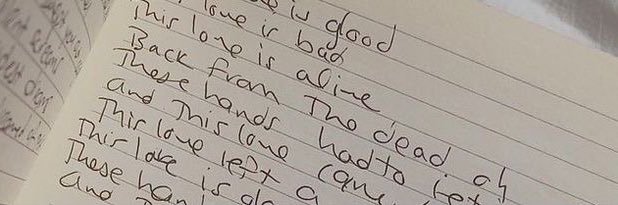 is good
This love is bad
This love is alive
Back from The dead oh
These hands had to let
and This love came
This love left a
This love is
These han
and